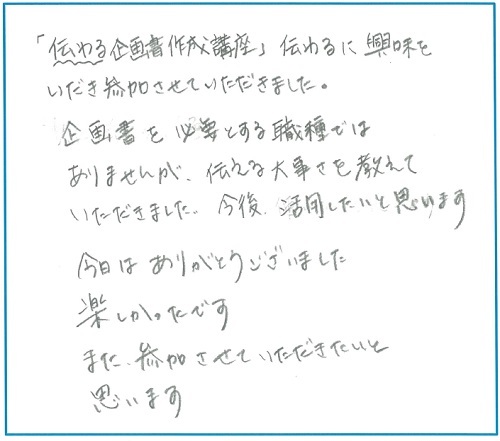 「伝わる企画書作成講座」伝わるに興味を
いだき参加させていただきました。
企画書を必要とする職種では
ありませんが、伝える大事さを教えて
いただきました。今後、活用したいと思います
今日はありがとうございました
楽しかったです
また、参加させていただきたいと
思います